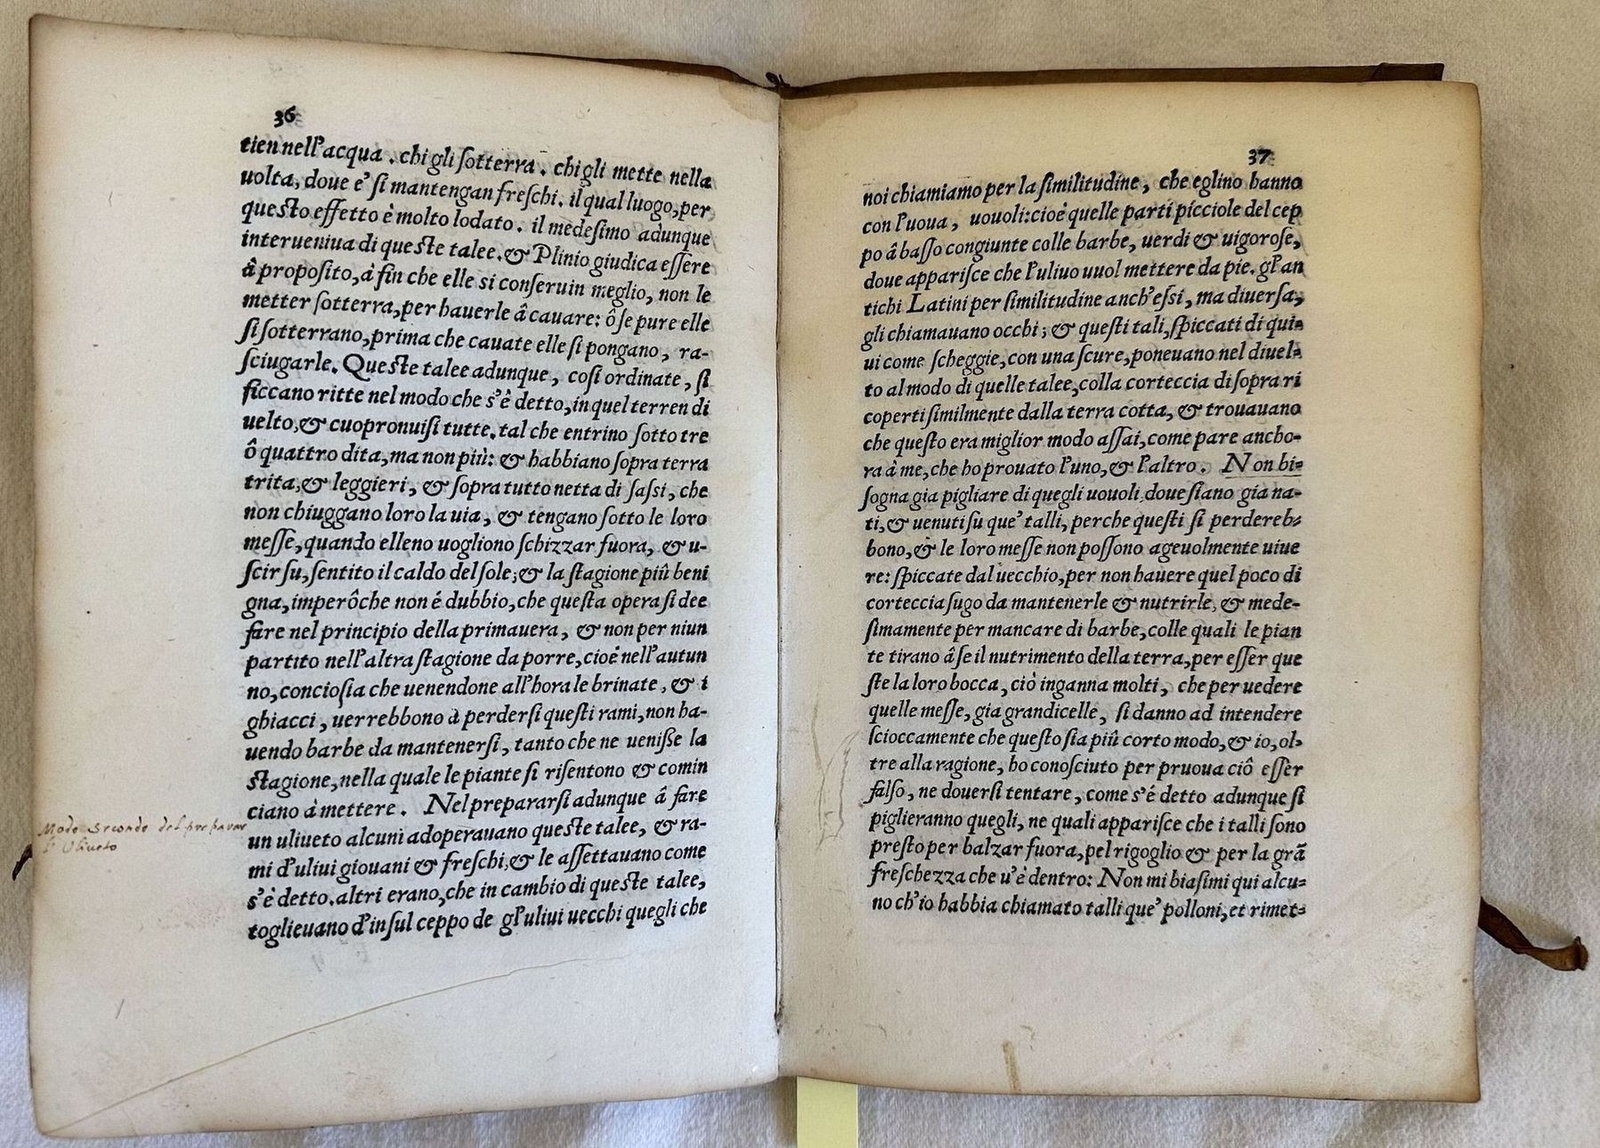 36
tien nell'acqua . chi gli ſotterra . chi gli mette nella
uolta, doue e' ſi mantengan freſchi. il qual luogo, per
queſto effetto è molto lodato. il medeſimo adunque
interueniua di queſte talee. & Plinio giudica eſſere
â propoſito, à fin che elle si conſeruin meglio, non le
metter ſotterra, per hauerle â cauare: ô ſe pure elle
ſi ſotterrano, prima che cauate elle ſi pongano, ra-
ſciugarle. Queſte talee adunque, coſi ordinate, ſi
ficcano ritte nel modo che s'ê detto, in quel terren di
uelto, & cuopronuiſi tutte. tal che entrino ſotto tre
ô quattro dita, ma non più: & habbiano ſopra terra
trita, & leggieri, & ſopra tutto netta di ſaſſi, che
non chiuggano loro la uia, & tengano ſotto le loro
meſſe, quando elleno uogliono ſchizzar fuora, & u-
ſcir ſu, ſentito il caldo del ſole; & la ſtagione più beni
gna, imperôche non é dubbio, che queſta opera ſi dee
fare nel principio della primauera, & non per niun
partito nell'altra ſtagione da porre, cioé nell'autun
no, concioſia che uenendone all'hora le brinate, & i
ghiacci, uerrebbono à perderſi queſti rami, non ha-
uendo barbe da mantenerſi, tanto che ne ueniſſe la
ſtagione, nella quale le piante ſi riſentono & comin
ciano à mettere. Nel prepararſi adunque â fare
un uliueto alcuni adoperauano queſte talee, & ra-
mi d'uliui giouani & freſchi, & le aſſettauano come
s'è detto. altri erano, che in cambio di queſte talee,
toglieuano d'in ſul ceppo de gl'uliui uecchi quegli che
Modo secondo del preparar
l'Uliueto
37
noi chiamiamo per la ſimilitudine, che eglino hanno
con l'uoua, uouoli: cioè quelle parti picciole del cep
po â baſſo congiunte colle barbe, uerdi & uigoroſe,
doue appariſce che l'uliuo uuol mettere da pie. gl'an
tichi Latini per ſimilitudine anch'eſsi, ma diuerſa,
gli chiamauano occhi; & queſti tali, ſpiccati di qui-
ui come ſcheggie, con una ſcure, poneuano nel diuel-
to al modo di quelle talee, colla corteccia di ſopra ri
coperti ſimilmente dalla terra cotta, & trouauano
che queſto era miglior modo aſſai, come pare ancho-
ra â me, che ho prouato l'uno, & l'altro. Non bi-
ſogna gia pigliare di quegli uouoli doue ſiano gia na-
ti, & uenuti ſu que' talli, perche queſti ſi perdereb-
bono, & le loro meſſe non poſſono ageuolmente uiue
re: ſpiccate dal uecchio, per non hauere quel poco di
corteccia ſugo da mantenerle & nutrirle, & mede-
ſimamente per mancare di barbe, colle quali le pian
te tirano â ſe il nutrimento della terra, per eſſer que
ſte la loro bocca, ciò inganna molti, che per uedere
quelle meſſe, gia grandicelle, ſi danno ad intendere
ſcioccamente che queſto ſia più corto modo, & io, ol-
tre alla ragione, ho conoſciuto per pruoua ciô eſſer
falſo, ne douerſi tentare, come s'é detto adunque ſi
piglieranno quegli, ne quali appariſce che i talli ſono
preſto per balzar fuora, pel rigoglio & per la grã
freſchezza che u'è dentro: Non mi biaſimi qui alcu-
no ch'io habbia chiamato talli que' polloni, et rimet-